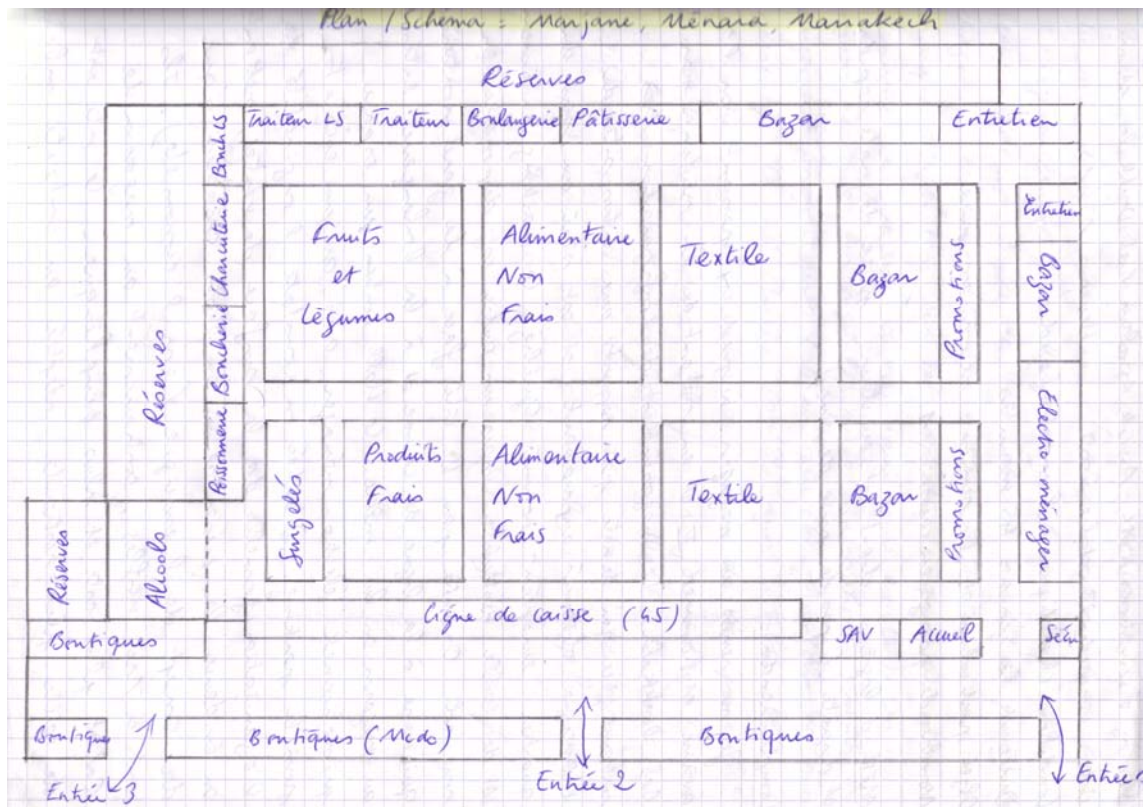 Plan / Schéma : Marjane, Ménara, Marrakech
Réserves
Traiteur LS
Traiteur
Boulangerie
Pâtisserie
Bazar
Entretien
Bouch LS
Charcuterie
Boucherie
Poissonnerie
Réserves
Fruits
et
Légumes
Alimentaire
Non
Frais
Textile
Bazar
Promotions
Entretien
Bazar
Electro-ménager
Surgelés
Produits
Frais
Alimentaire
Non
Frais
Textile
Bazar
Promotions
Réserves
Alcools
Boutiques
Ligne de caisse (45)
SAV
Accueil
Sécu
Boutique
Boutiques (Mcdo)
Boutiques
Entrée 3
Entrée 2
Entrée